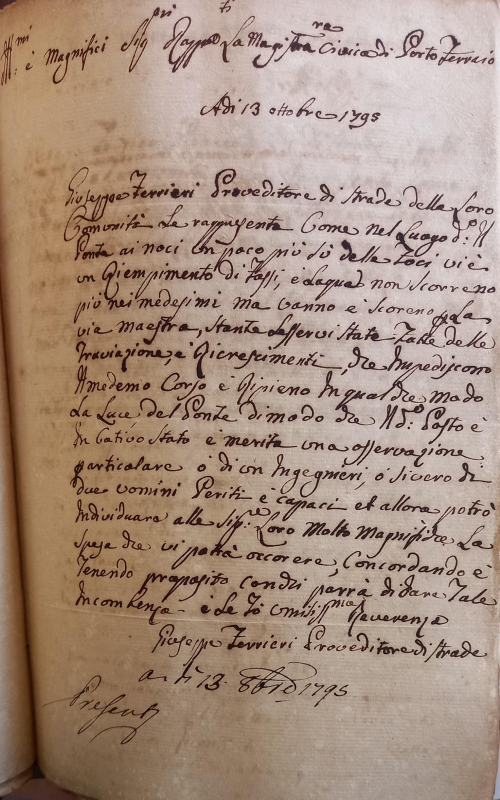 Ill:mi e Magnifici Sig:ri Rapp:ti La Magistra:ra Civica di Porto Ferraio
Adi 13 ottobre 1795
Giuseppe Ferrieri Proveditore di strade della Loro
Comunità Le rappresenta Come nel Luogo d:o Il
Ponte ai noci un poco più sù delle Foci vi è
un Riempimento di Sassi, e Laque non Scorreno
più nei medesimi ma vanno e scoreno p La
via maestra, stante Lesservi state Tante delle
Traviazione, e Ricrescimenti, che Impediscono
Il medemo Corso e Ripieno In qualche modo
La Luce del Ponte di modo che Il d:o Posto è
In Cativo Stato e merita una osservazione
particolare ò di un Ingegnieri, o sivero di
due uomini Periti e capaci et allora potrò
Individuare alle Sig:e Loro Molto Magnifiche La
spesa che vi potrà occorere, Concordando è
Tenendo proposito Con chi parrà di dare Tale
Incombenza - e Le fò umiliss:ma Reverenza
Giuseppe Ferrieri Proveditore di strade
a di 13. 8bre 1795
Present